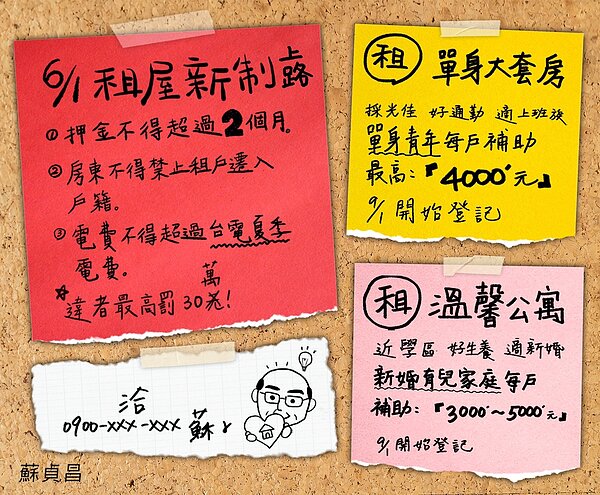 6/1 租屋新制上路
① 押金不得超過2個月。
② 房東不得禁止租戶遷入
戶籍。
③ 電費不得超過台電夏季
電費。
☆違者最高罰30萬!
萬
租 單身大套房
採光佳 好通勤 適上班族
單身青年每戶補助
最高:『4000元』
9/1 開始登記
租 溫馨公寓
近學區 好生養 適新婚
新婚育兒家庭每戶
補助:『3000~5000元』
9/1 開始登記
洽
0900-xxx-xxx 蘇
蘇貞昌